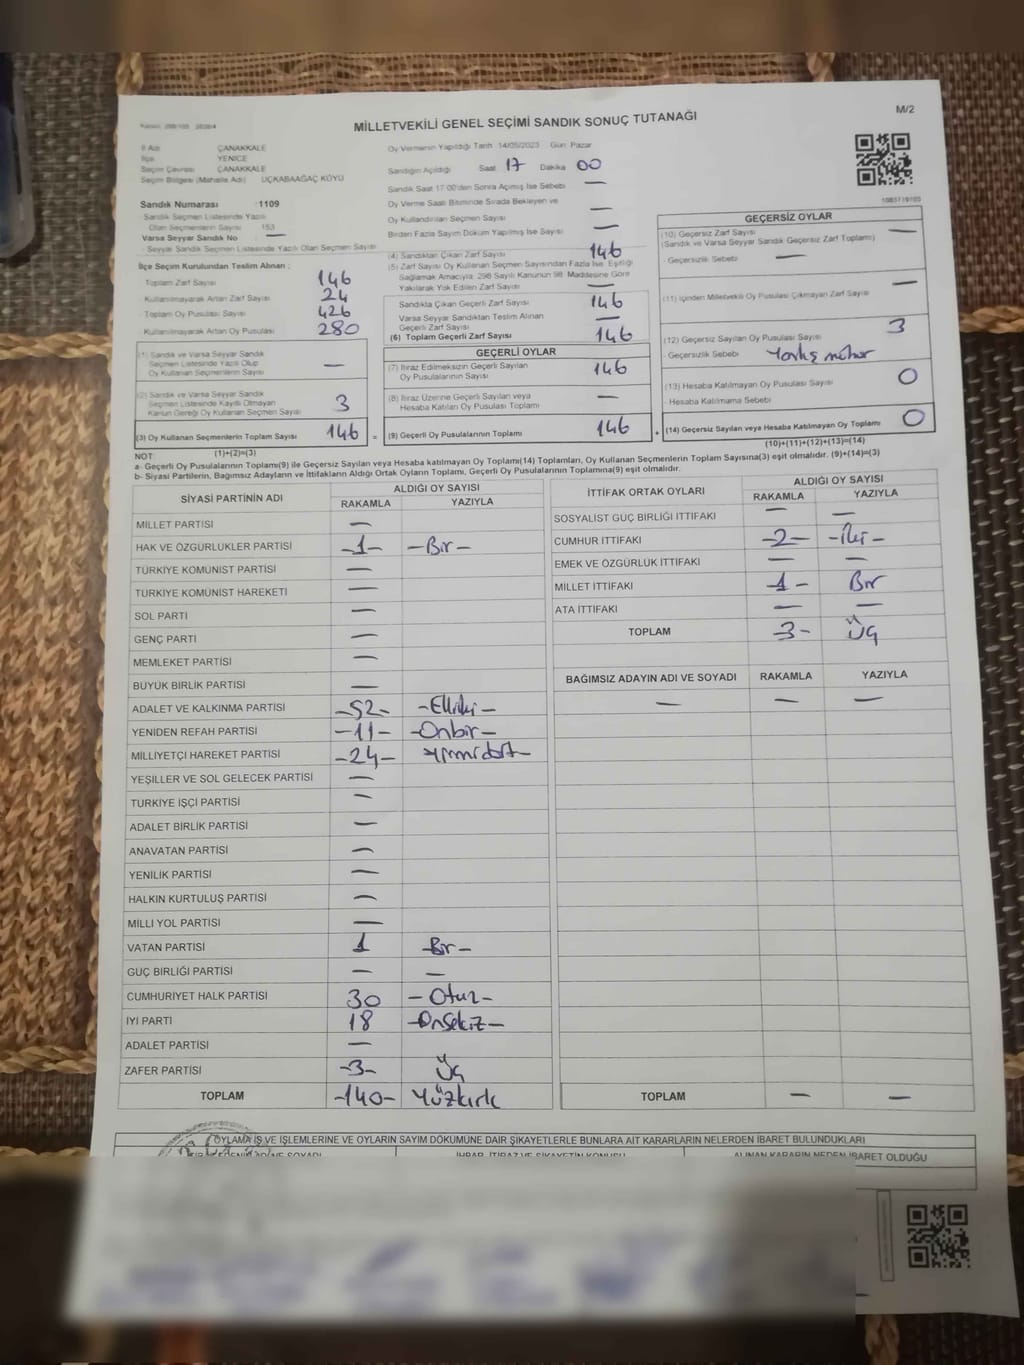 M/2
MİLLETVEKİLİ GENEL SEÇİMİ SANDIK SONUÇ TUTANAĞI
İl Adı ÇANAKKALE
İlçe YENİCE
Seçim Çevresi ÇANAKKALE
Seçim Bölgesi (Mahalle Adı) ÜÇKABAAĞAÇ KÖYÜ
Sandık Numarası :1109
Sandık Seçmen Listesinde Yazılı
Olan Seçmenlerin Sayısı :153
Varsa Seyyar Sandık No —
Seyyar Sandık Seçmen Listesinde Yazılı Olan Seçmen Sayısı
İlçe Seçim Kurulundan Teslim Alınan :
Toplam Zarf Sayısı 146
Kullanılmayarak Artan Zarf Sayısı 24
Toplam Oy Pusulası Sayısı 426
Kullanılmayarak Artan Oy Pusulası 280
(1) Sandık ve Varsa Seyyar Sandık
Seçmen Listesinde Yazılı Olup
Oy Kullanan Seçmenlerin Sayısı —
(2) Sandık ve Varsa Seyyar Sandık
Seçmen Listesinde Kayıtlı Olmayan
Kanun Gereği Oy Kullanan Seçmen Sayısı 3
(3) Oy Kullanan Seçmenlerin Toplam Sayısı 146 =
(1)+(2)=(3)
Oy Vermenin Yapıldığı Tarih 14/05/2023 Gün Pazar
Sandığın Açıldığı Saat 17 Dakika 00
Sandık Saat 17.00'den Sonra Açılmış İse Sebebi —
Oy Verme Saati Bitiminde Sırada Bekleyen ve
Oy Kullandırılan Seçmen Sayısı —
Birden Fazla Sayım Döküm Yapılmış İse Sayısı —
(4) Sandıktan Çıkan Zarf Sayısı 146
(5) Zarf Sayısı Oy Kullanan Seçmen Sayısından Fazla İse, Eşitliği
Sağlamak Amacıyla 298 Sayılı Kanunun 98. Maddesine Göre
Yakılarak Yok Edilen Zarf Sayısı —
Sandıkta Çıkan Geçerli Zarf Sayısı 146
Varsa Seyyar Sandıktan Teslim Alınan
Geçerli Zarf Sayısı —
(6) Toplam Geçerli Zarf Sayısı 146
GEÇERLİ OYLAR
(7) İtiraz Edilmeksizin Geçerli Sayılan
Oy Pusulalarının Sayısı 146
(8) İtiraz Üzerine Geçerli Sayılan veya
Hesaba Katılan Oy Pusulası Toplamı —
(9) Geçerli Oy Pusulalarının Toplamı 146 +
GEÇERSİZ OYLAR
(10) Geçersiz Zarf Sayısı
(Sandık ve Varsa Seyyar Sandık Geçersiz Zarf Toplamı) —
- Geçersizlik Sebebi —
(11) İçinden Milletvekili Oy Pusulası Çıkmayan Zarf Sayısı —
(12) Geçersiz Sayılan Oy Pusulası Sayısı 3
- Geçersizlik Sebebi Yanlış mühür
(13) Hesaba Katılmayan Oy Pusulası Sayısı 0
- Hesaba Katılmama Sebebi
(14) Geçersiz Sayılan veya Hesaba Katılmayan Oy Toplamı 0
(10)+(11)+(12)+(13)=(14)
NOT:
a- Geçerli Oy Pusulalarının Toplamı(9) ile Geçersiz Sayılan veya Hesaba katılmayan Oy Toplamı(14) Toplamları, Oy Kullanan Seçmenlerin Toplam Sayısına(3) eşit olmalıdır. (9)+(14)=(3)
b- Siyasi Partilerin, Bağımsız Adayların ve İttifakların Aldığı Ortak Oyların Toplamı, Geçerli Oy Pusulalarının Toplamına(9) eşit olmalıdır.
SİYASİ PARTİNİN ADI ALDIĞI OY SAYISI
RAKAMLA YAZIYLA
MİLLET PARTİSİ —
HAK VE ÖZGÜRLÜKLER PARTİSİ -1- -Bir-
TÜRKİYE KOMÜNİST PARTİSİ —
TÜRKİYE KOMÜNİST HAREKETİ —
SOL PARTİ —
GENÇ PARTİ —
MEMLEKET PARTİSİ —
BÜYÜK BİRLİK PARTİSİ —
ADALET VE KALKINMA PARTİSİ -52- -Elliiki-
YENİDEN REFAH PARTİSİ -11- -Onbir-
MİLLİYETÇİ HAREKET PARTİSİ -24- Yirmidört-
YEŞİLLER VE SOL GELECEK PARTİSİ —
TÜRKİYE İŞÇİ PARTİSİ —
ADALET BİRLİK PARTİSİ —
ANAVATAN PARTİSİ —
YENİLİK PARTİSİ —
HALKIN KURTULUŞ PARTİSİ —
MİLLİ YOL PARTİSİ —
VATAN PARTİSİ 1 -Bir-
GÜÇ BİRLİĞİ PARTİSİ — —
CUMHURİYET HALK PARTİSİ 30 -Otuz-
İYİ PARTİ 18 -Onsekiz-
ADALET PARTİSİ —
ZAFER PARTİSİ -3- Üç
TOPLAM -140- Yüzkırk
İTTİFAK ORTAK OYLARI ALDIĞI OY SAYISI
RAKAMLA YAZIYLA
SOSYALİST GÜÇ BİRLİĞİ İTTİFAKI — —
CUMHUR İTTİFAKI -2- -İki-
EMEK VE ÖZGÜRLÜK İTTİFAKI — —
MİLLET İTTİFAKI -1- Bir
ATA İTTİFAKI — —
TOPLAM -3- Üç
BAĞIMSIZ ADAYIN ADI VE SOYADI RAKAMLA YAZIYLA
— — —
TOPLAM — —
OYLAMA İŞ VE İŞLEMLERİNE VE OYLARIN SAYIM DÖKÜMÜNE DAİR ŞİKAYETLERLE BUNLARA AİT KARARLARIN NELERDEN İBARET BULUNDUKLARI
İHBAR, İTİRAZ VE ŞİKAYETİN KONUSU ALINAN KARARIN NEDEN İBARET OLDUĞU